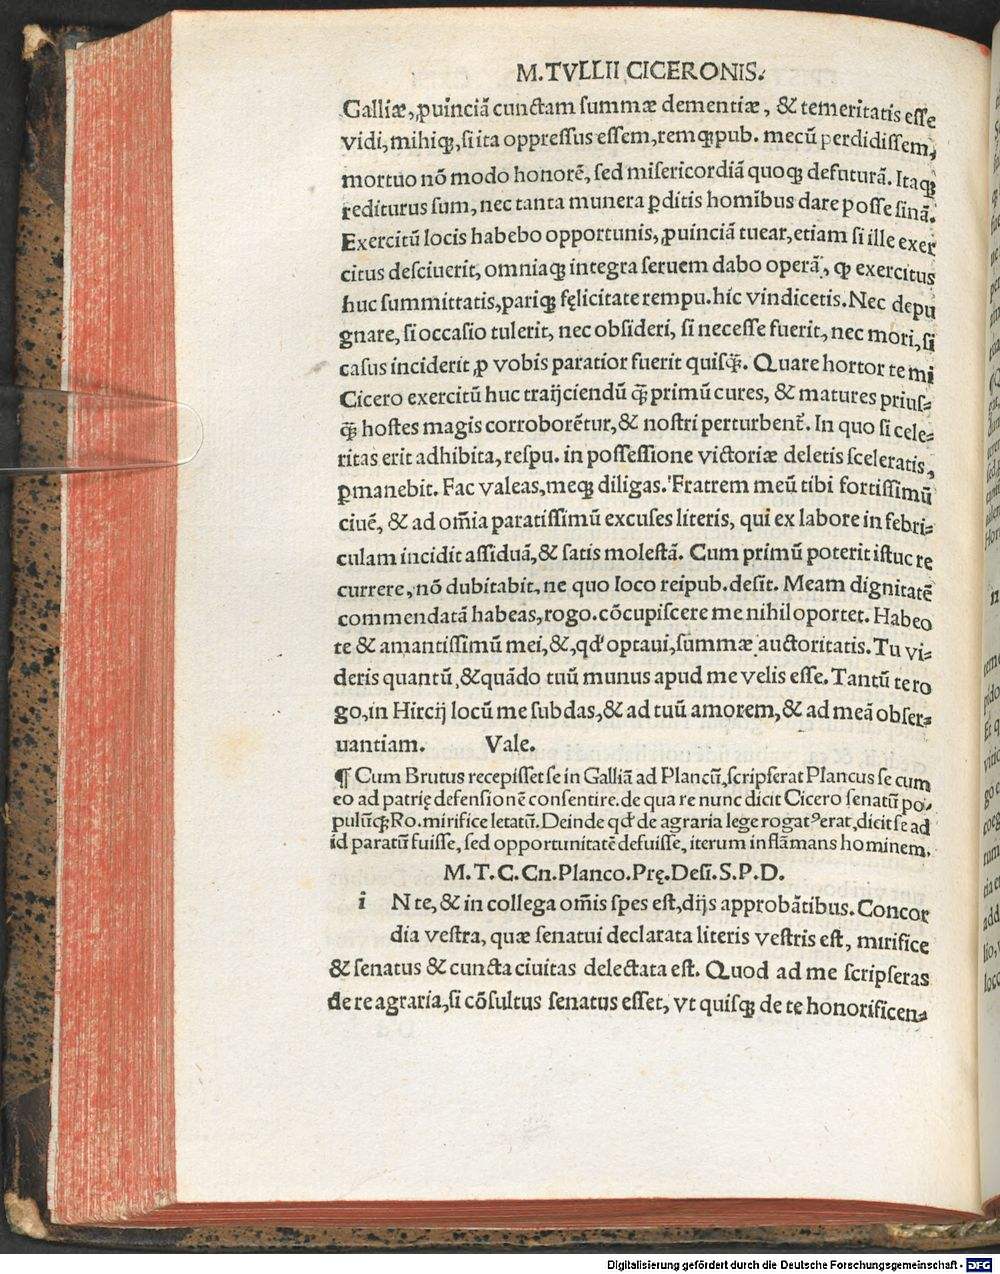 M.TVLLII CICERONIS.
Galliæ, ꝓuinciā cunctam summæ dementiæ, & temeritatis esse
vidi, mihiqꝫ, si ita oppressus essem, remqꝫ pub. mecū perdidissem,
mortuo nō modo honorē, sed misericordiā quoqꝫ defuturā. Itaqꝫ
rediturus sum, nec tanta munera ꝑditis hominibus dare posse sinā.
Exercitū locis habebo opportunis, ꝓuinciā tuear, etiam si ille exer
citus desciuerit, omniaqꝫ integra seruem dabo operā, qꝫ exercitus
huc summittatis, pariqꝫ fęlicitate rempu. hic vindicetis. Nec depu
gnare, si occasio tulerit, nec obsideri, si necesse fuerit, nec mori, si
casus inciderit ꝓ vobis paratior fuerit quisqꝫ̄. Quare hortor te mi
Cicero exercitū huc traijciendū qꝫ̄ primū cures, & matures prius-
qꝫ̄ hostes magis corroborētur, & nostri perturbent̄. In quo si cele-
ritas erit adhibita, respu. in possessione victoriæ deletis sceleratis,
ꝑmanebit. Fac valeas, meqꝫ diligas. Fratrem meū tibi fortissimū
ciuē, & ad om̄ia paratissimū excuses literis, qui ex labore in febri-
culam incidit assiduā, & satis molestā. Cum primū poterit istuc re
currere, nō dubitabit, ne quo loco reipub. desit. Meam dignitatē
commendatā habeas, rogo. cōcupiscere me nihil oportet. Habeo
te & amantissimū mei, &, qd̓ optaui, summæ auctoritatis. Tu vi-
deris quantū, & quādo tuū munus apud me velis esse. Tantū te ro
go, in Hircij locū me subdas, & ad tuū amorem, & ad meā obser-
uantiam. Vale.
¶ Cum Brutus recepisset se in Galliā ad Plancū, scripserat Plancus se cum
eo ad patrię defensionē consentire. de qua re nunc dicit Cicero senatū po-
pulūqꝫ Ro. mirifice letatū. Deinde qd̓ de agraria lege rogatꝰ erat, dicit se ad
id paratū fuisse, sed opportunitatē defuisse, iterum inflāmans hominem.
M. T. C. Cn. Planco. Prę. Desi. S. P. D.
i N te, & in collega om̄is spes est, dijs approbātibus. Concor
dia vestra, quæ senatui declarata literis vestris est, mirifice
& senatus & cuncta ciuitas delectata est. Quod ad me scripseras
de re agraria, si cōsultus senatus esset, vt quisqꝫ de te honorificen-
Digitalisierung gefördert durch die Deutsche Forschungsgemeinschaft - DFG